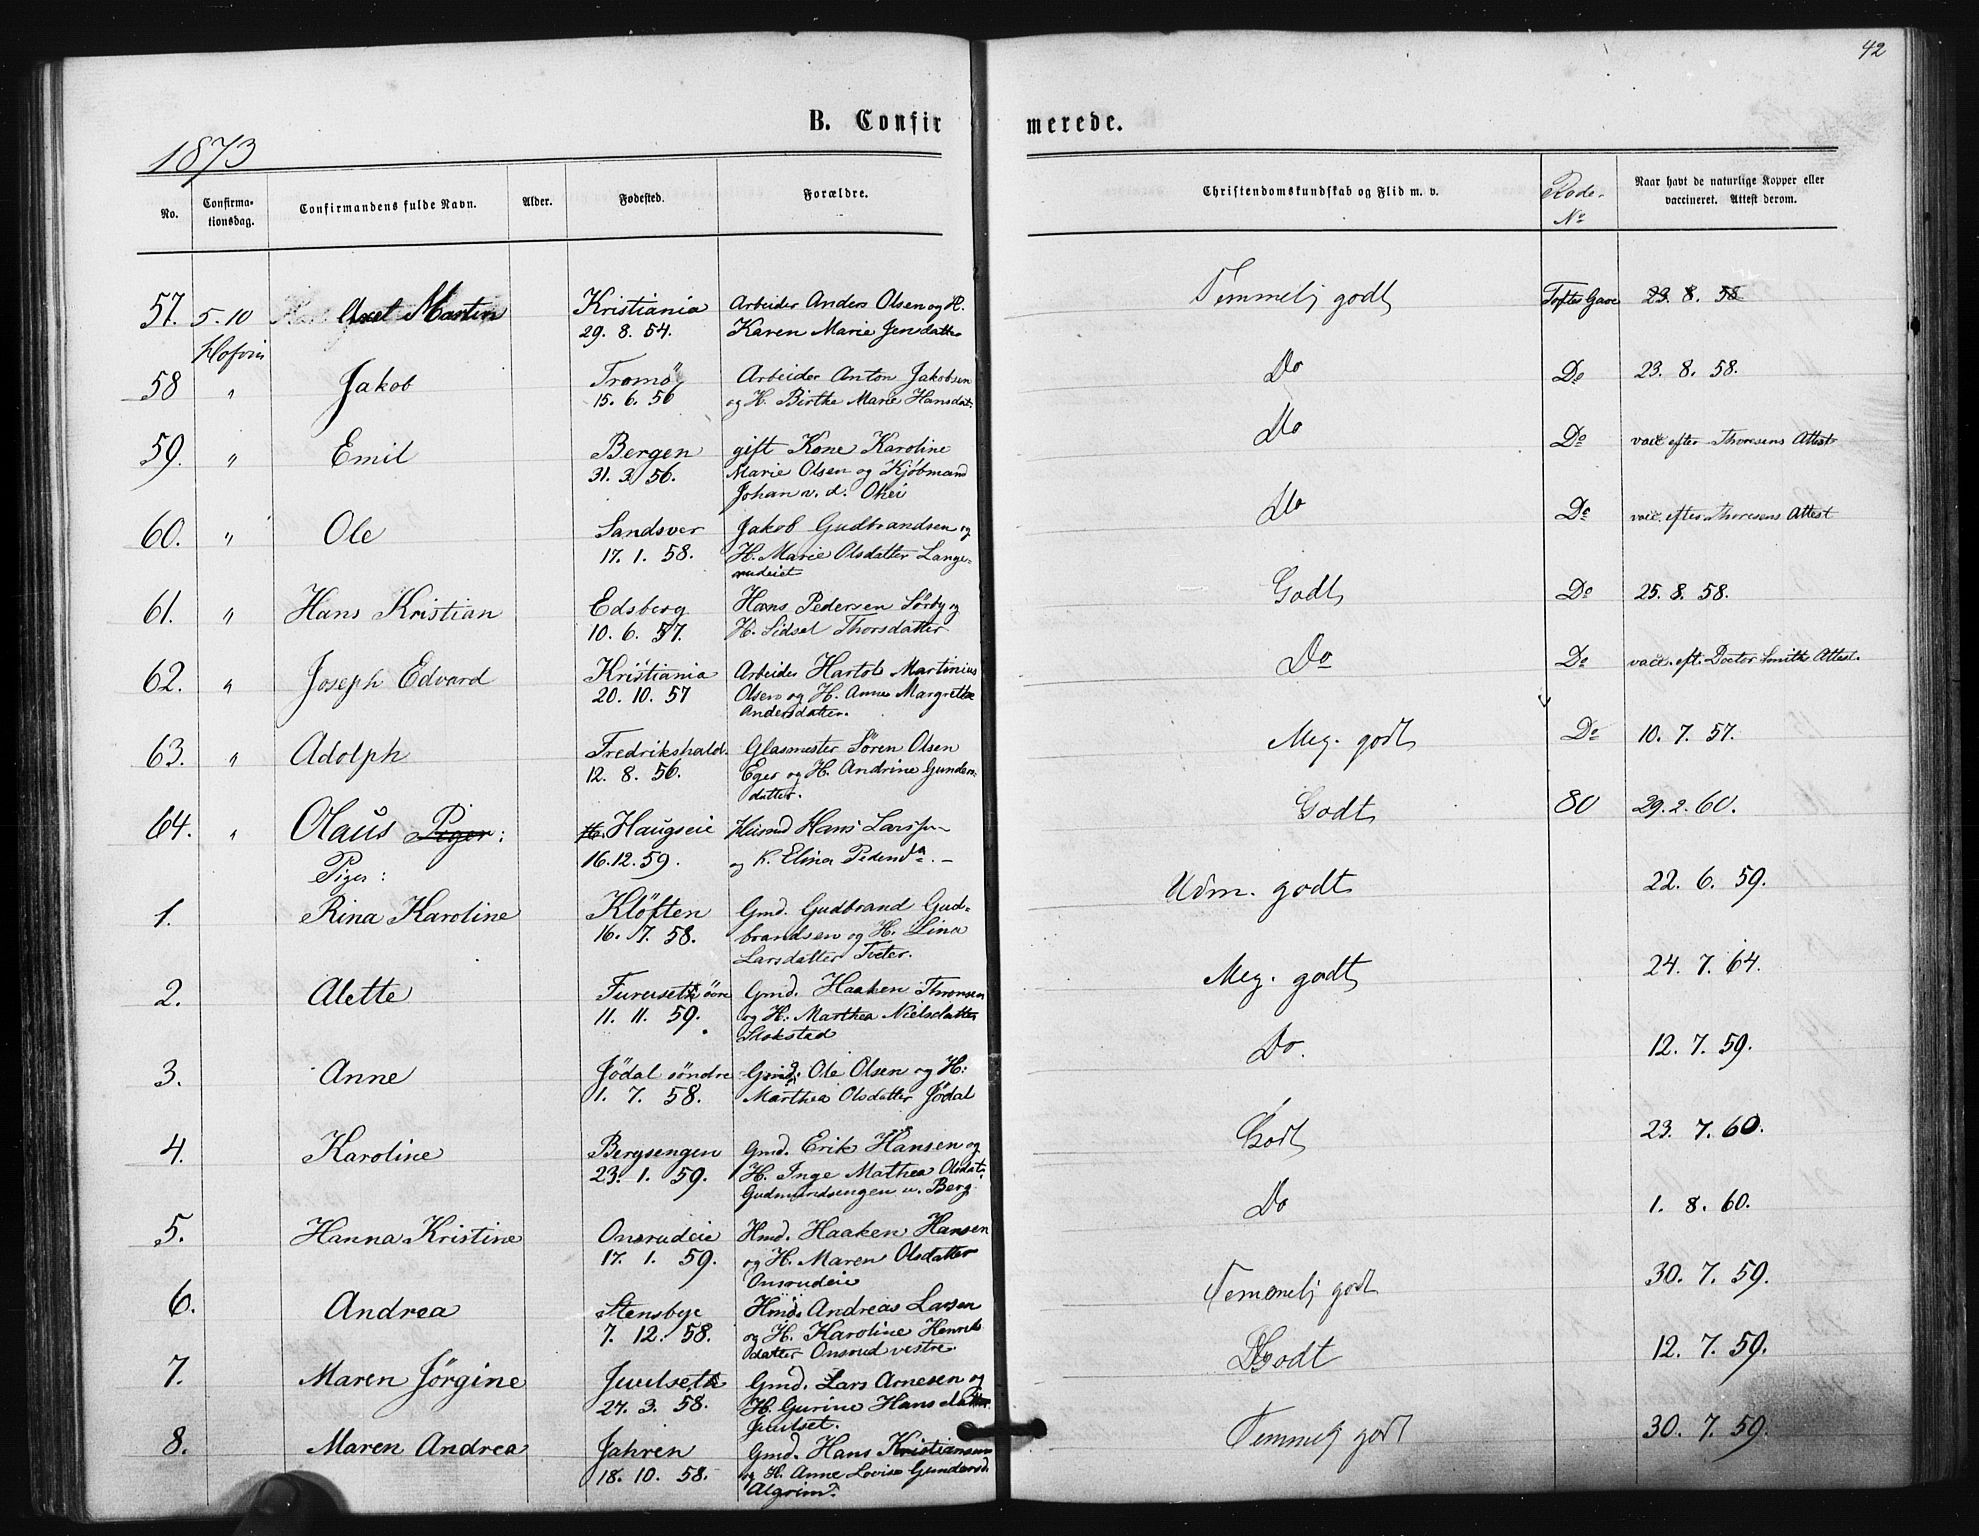 42
B. Confir merede.
1873
No. Confirma-tionsdag. Confirmandens fulde Navn. Alder. Fødested. Forældre. Christendomskundskab og Flid m. v. Rode-No Naar havt de naturlige Kopper eller vaccineret. Attest derom.
57. 5.10 Axel Martin Kristiania Arbeider Anders Olsen og H. Temmelig godt Toftes Gave 23. 8. 58
Hofvin 29. 8. 54. Karen Marie Jensdatter
58 " Jakob Tromö Arbeider Anton Jakobsen Do Do 23. 8. 58.
15. 6. 56 og H. Birthe Marie Hansdat.
59. " Emil Bergen gift Kone Karoline Do Do vacc efter Thoresens Attest
31. 3. 56. Marie Olsen og Kjøbmand
Johan v. d. Ohei
60. " Ole Sandsver Jakob Gudbrandsen og Do Do vacc. efter Thoresens Attest
17. 1. 58. H. Marie Olsdatter Lange-
rudeiet
61. " Hans Kristian Edsberg Hans Pedersen Sörby og Godt Do 25. 8. 58.
10. 6. 57. H. Sidsel Thorsdatter
62. " Joseph Edvard Kristiania Arbeider Martinius Do Do vacc. eft. Doctor Smiths Attest.
20. 10. 57 Olsen og H. Anne Margrethe
Andersdatter.
63. " Adolph Fredrikshald. Glasmester Sören Olsen Meg. godt Do 10. 7. 57.
12. 8. 56. Eger og H. Andrine Gunders-
datter.
64. " Olaus Piger: Haugseie Huusmd Hans Larssen Godt 80 29. 2. 60.
Piger: 16.12.59. og K. Elina Pedersda. –
1. Rina Karoline Klöften Gmd. Gudbrand Gud- Udm. godt 22. 6. 59.
16. 7. 58. brandsen og H. Lina
Larsdatter Tveter.
2. Alette Furuseth övre Gmd. Haaken Thronsen Meg. godt 24. 7. 64.
11. 11. 59. og H. Marthea Nielsdatter
Slokstad
3. Anne Jödal söndre Gmd. Ole Olsen og H: Do. 12. 7. 59.
1. 7. 58. Marthea Olsdatter Jödal
4. Karoline Bergsengen Gmd. Erik Hansen og Godt 23. 7. 60.
23. 1. 59. H. Inge Mathea Olsdat:
Gudmundsengen u. Berg.
5. Hanna Kristine Onsrudeie Hmd. Haaken Hansen Do 1. 8. 60.
17. 1. 59. og H. Maren Olsdatter
Onsrudeie
6. Andrea Stensbye Hmd. Andreas Larsen Temmelig godt 30. 7. 59.
7. 12. 58. og H. Karoline Henriks
datter Onsrud vestre.
7. Maren Jørgine Juulseth Gmd. Lars Arnesen og Godt 12. 7. 59.
27. 3. 58. H. Gurine Hansdatter
Juulset.
8. Maren Andrea Jahren Gmd. Hans Kristiansen Temmelig godt 30. 7. 59.
18. 10. 58. og H. Anne Lovise Gundersd.
Algrim?